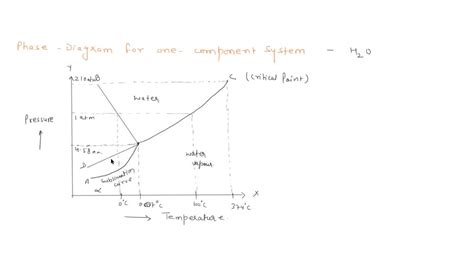 Phase - Diagram for one- component System - H2O
Y
218atm B
C (Critical Point)
water
1 atm
Pressure
4.58mm
D
A
sublimation
curve
water
vapour
X
0°C
100°C
374°C
Temperature